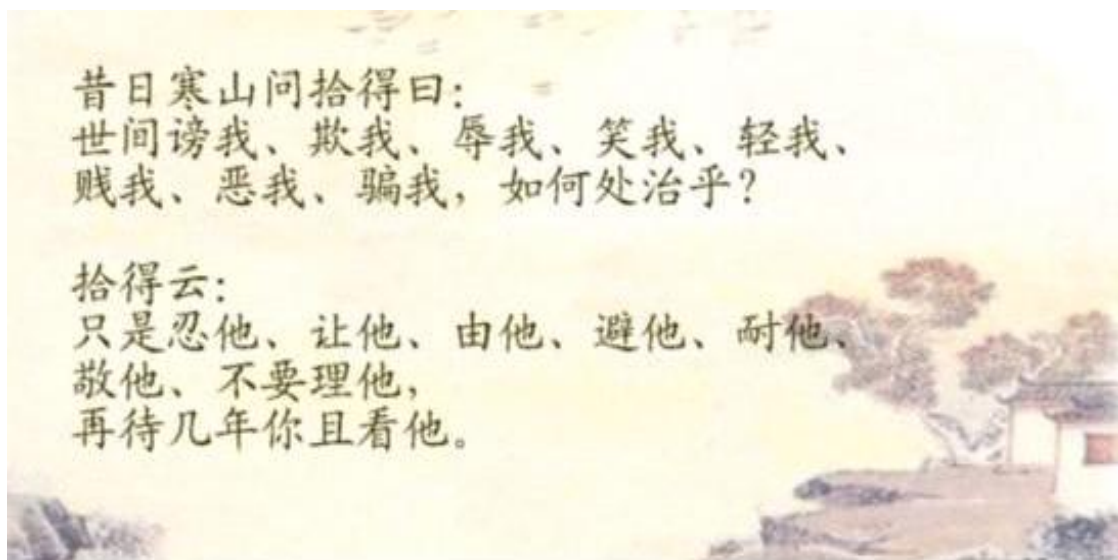 昔日寒山问拾得曰：
世间谤我、欺我、辱我、笑我、轻我、
贱我、恶我、骗我，如何处治乎？
拾得云：
只是忍他、让他、由他、避他、耐他、
敬他、不要理他，
再待几年你且看他。